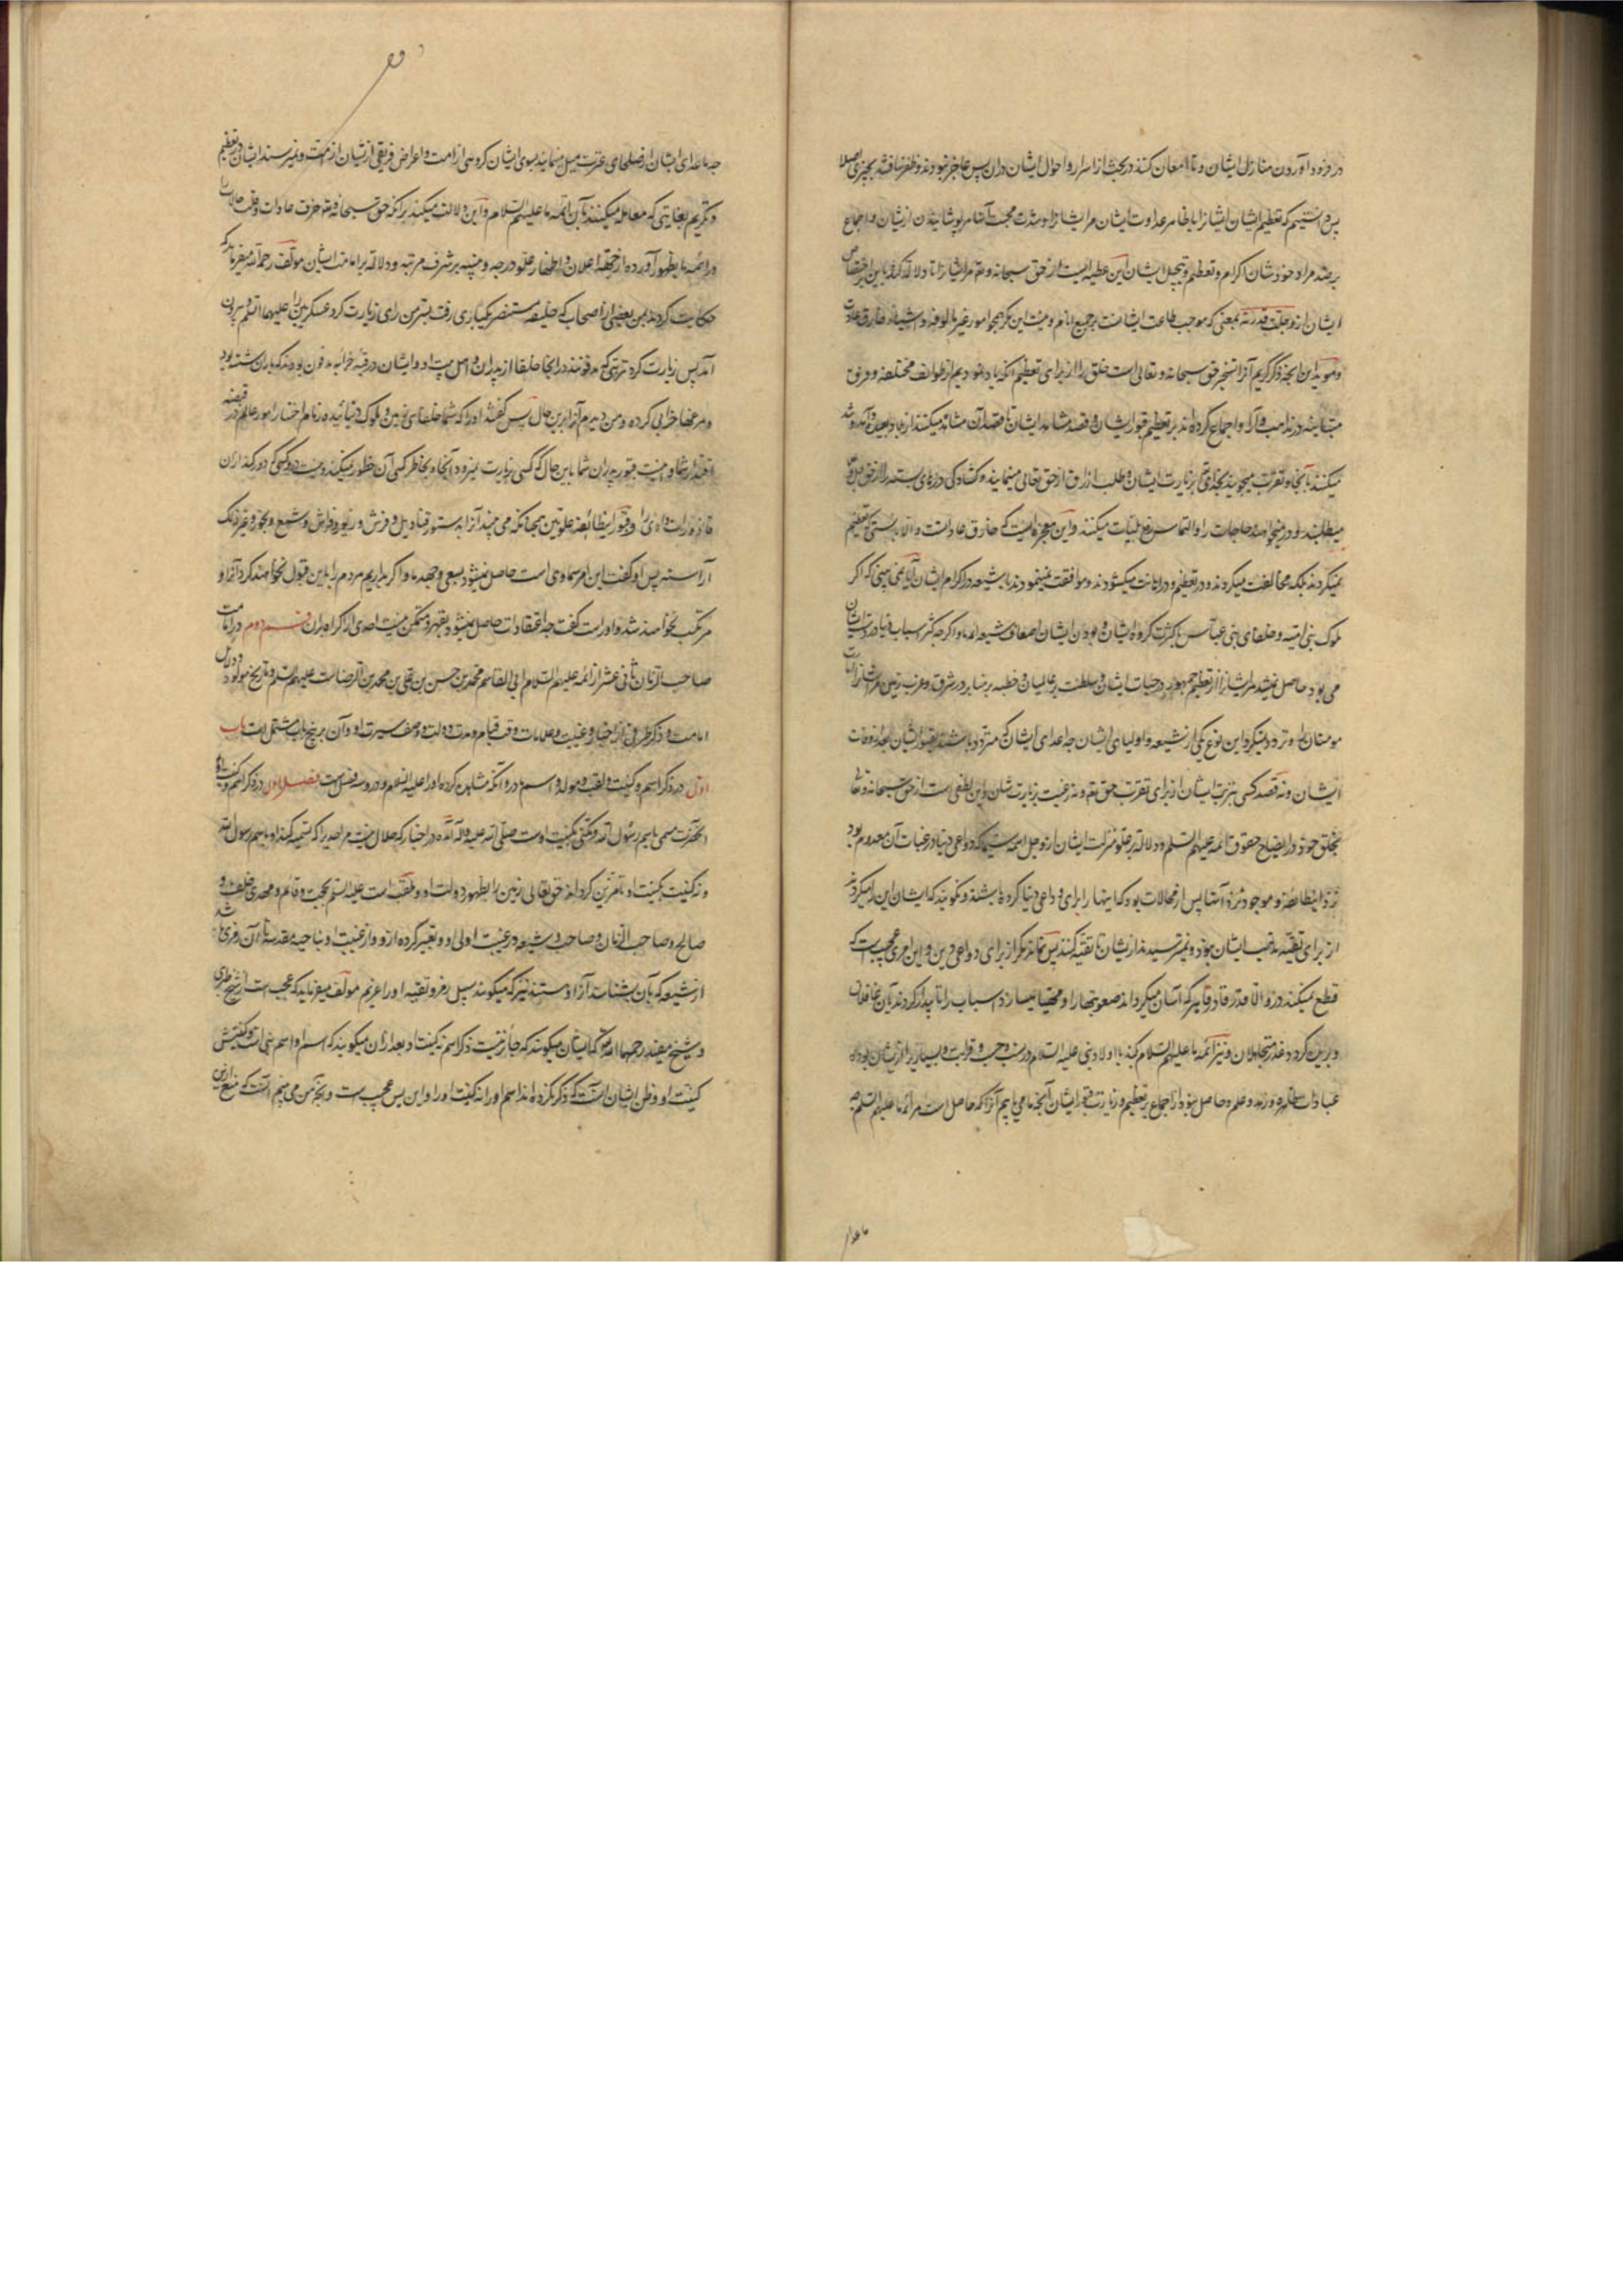 در فرود آوردن منازل ایشان و تا امعان کنند در بحث از اسرار و احوال ایشان و از آن پس عاجز نبودند و ظفر نیافتند بچیزی اصلا
پس دانستیم که تعظیم ایشان ایشانرا با ظاهر عداوت ایشان مر ایشانرا و شدت محبت آنها مر پوشانیدن از ایشان و اجماع
بر ضد مراد خودشان اکرام و تعظیم و تبجیل ایشان این عطیه ایست از حق سبحانه و تعه مر ایشانرا تا دلالت کرد باین اختصاص
ایشان از و جلت قدرته بمعنی که موجب طاعت ایشانست بر جمیع انام و نیست این مکر همچو امور غیر مالوفه و اشیاء خارق عادت
و موید این آنچه ذکر کردیم آنرا تسخیر حق سبحانه و تعالی است خلق را از برای تعظیم آنکه یاد نمودیم از طوائف مختلفه و فرق
متباینه در مذاهب و آراء و اجماع کرده اند بر تعظیم قبور ایشان و قصد مشاهد ایشان تا قصد آن مشاهد میکنند از بلاد بعیده و آمد و شد
میکنند بآنجا و تقرب میجویند بخدای تعه بزیارت ایشان و طلب ارزق از حق تعالی مینمایند و کشادگی درهای بسته را از حق
میطلبند و در میخواهند حاجات را و التماس رفع بلیات میکنند و این معجزه ایست که خارق عادات است و الا بایستی که تعظیم
نمیکردند بلکه مخالفت میکردند و در تعظیم و در اهانت میکشودند و موافقت نمینمودند با شیعه در اکرام ایشان آیا نمی بینی که اگر
ملوک بنی امیه و خلفای بنی عباس با کثرت گروه ایشان و بودن ایشان اضعاف شیعه ائمه ما و اگر چه اکثر اسباب دنیا در دست ایشان
می بود حاصل نمیشد مر ایشانرا از تعظیم جمهور در حیات ایشان و سلطنت بر عالمیان و خطبه بر منابر در شرق و غرب زمین
مومنان و تردد نمیکرد این نوع یکی از شیعه و اولیای ایشان چه اعدای ایشان که متردد باشند بقبور ایشان بعد از وفات
ایشان و نه قصد کسی بتربت ایشان از برای تقرب حق تعه و نه رغبت بزیارت شان و این لطفی است از حق سبحانه و تعالی
بخلق خود در ایضاح حقوق ائمه علیهم السلم و دلالة بر علو منزلت ایشان از و جل اسمه سیما که دواعی دنیا و رغبات آن معدوم بود
نزد این طائفه و موجود نزد آنها پس از محالات بود که اینها را برای دواعی دنیا کرده باشند و نکویند که ایشان این را میکردند
از برای تقیه مذهب ایشان بود و نمیترسیدند از ایشان تا تقیه کنند پس نماند مگر از برای دواعی دین و این امری عجیب است که
قطع نمیکند در و الا قدرت قادر قاهر که آسان میگرداند صعوبتها را و مهیا میسازد اسباب را تا بیدار کردند بآن غافلان
و برین کردد عذر متجاهلان و نیز ائمه ما علیهم السلام کند با اولاد نبی علیه السلام در نسب و حسب و قرابت و بسیاری را از ایشان بوده
عبادات ظاهره و زهد و علم و حاصل نبود از اجماع بر تعظیم و زیارت قبر ایشان آنچه ما می یابیم آنرا که حاصل است مر ائمه ما علیهم السلم
ماعدا
چه ماعدای ایشان از صلحای عترت میل مینمایند بسوی ایشان گروهی از امت و اعراض فریقی از ایشان از امت و نمیرسند ایشان در تعظیم
و تکریم بغایتی که معامله میکنند بآن ائمه ما علیهم السلام و این دلالت میکند بر آنکه حق سبحانه و تعه خرق عادات و قلب حالات
در ائمه ما بظهور آورده از جهة اعلان و اظهار علو درجه و تنبیه بر شرف مرتبه و دلالة بر امامت ایشان مولف رحمه الله میفرماید که
حکایت کردند بمن بعضی از اصحاب که خلیفه مستنصر یکباری رفت بسر من رای زیارت کرد عسکریین را علیهما السلم بیرون
آمد پس زیارت کرد تربتی که مدفونند در آنجا خلفا از پدران و اهل بیت او و ایشان در قبه خرابه مدفون بودند که باران
و مرغها خرابی کرده و من دیدم آنرا برین حال پس گفتند او را که شما خلفای زمین و ملوک دنیائید و زمام اختیار امور عالم در قبضه
اقتدار شما و نیست قبور پدران شما باین حال که کسی زیارت نمیرود آنجا و بخاطر کسی آن خطور نمیکند و نیست درو کسی که دور کند از آن
قاذورات و اذی را و قبور این طائفه علویین همچنانکه می بینید آنرا بستور و قنادیل و فرش و زیور و فراش و شمع و بخور و غیر ذلک
آراسته پس او گفت این امر سماوی است حاصل نمیشود بسعی و جهد ما و اگر بداریم مردم را باین قبول نخواهند کرد آنرا و
مرتکب نخواهند شد و او راست گفت چه اعتقادات حاصل نمیشود بقهر و متمکن نیست احدی از اکراه بران قسم دوم در امامت
صاحب الزمان ثانی عشر از ائمه علیهم السلام ابی القاسم محمد بن حسن بن علی بن محمد بن الرضاست علیهم السلم و تاریخ مولود و دلائل
امامت و ذکر طرفی از اخبار و غیبت و علامات وقت قیام و مدت دولت و وصف سیرت او و آن بر پنج باب مشتمل است باب
اول در ذکر اسم و کنیت و لقب و مولد و اسم مادر و آنکه مشاهده کرده او را علیه السلم و درو سه فصل است فصل اول در ذکر اسم و کنیت
آنحضرت مسمی باسم رسول الله و مکنی بکنیت اوست صلی الله علیه و آله آمده در اخبار که حلال نیست مر احدی را که تسمیه کند او باسم رسول الله
و نه کنیت بکنیت او تا مزین گرداند حق تعالی زمین را بظهور دولت او و ملقب است علیه السلم بحجت و قائم و مهدی و خلف و
صالح و صاحب الزمان و صاحب و شیعه در غیبت اولی او و تعبیر کرده از و و از غیبت او بناحیه مقدسه تا آن رمزی شد
از شیعه که بآن بشناسند آنرا و هستند نیز که میگویند بسبیل رمز و تقیه او را غریم مولف میفرماید که عجب است از شیخ طبرسی
و شیخ مفید رحمهما الله که ایشان میگویند که جائز نیست ذکر اسم نه کنیت او بعد از آن میگویند که اسم او اسم نبی است و کنیتش
کنیت او و ظن ایشان آنست که ذکر نکرده اند اسم او را نه کنیت او را و این بس عجیب است و آنچه من می بینم آنست که منع ازین